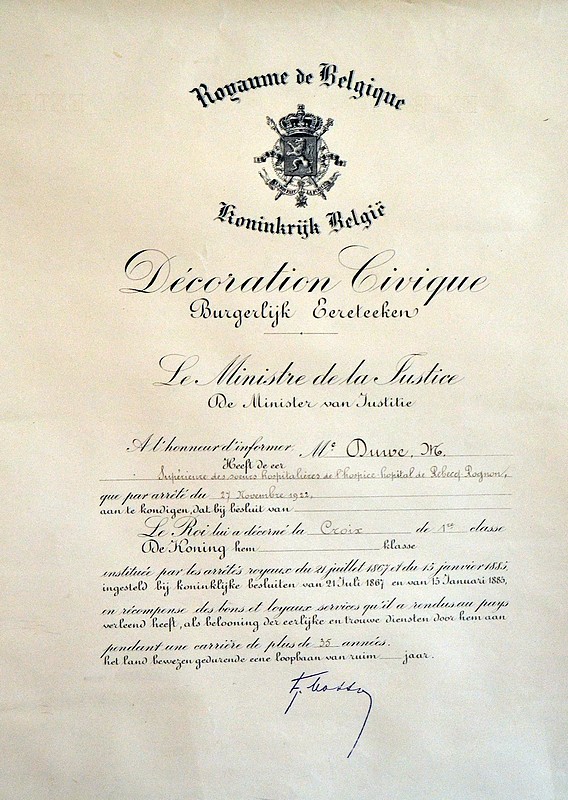 Royaume de Belgique
Koninkrijk België
Décoration Civique
Burgerlijk Eereteeken
Le Ministre de la Justice
De Minister van Justitie
A l'honneur d'informer Me Duwe, M.
Heeft de eer
Supérieure des soeurs hospitalières de l'hospice hopital de Rebecq Rognon,
que par arrêté du 27 Novembre 1922,
aan te kondigen, dat bij besluit van
Le Roi lui a décerné la Croix de 1re classe
De Koning hem klasse
instituée par les arrêtés royaux du 21 juillet 1867 et du 15 janvier 1885,
ingesteld bij koninklijke besluiten van 21 Juli 1867 en van 15 Januari 1885,
en récompense des bons et loyaux services qu'il a rendus au pays
verleend heeft, als belooning der eerlijke en trouwe diensten door hem aan
pendant une carrière de plus de 35 années.
het land bewezen gedurende eene loopbaan van ruim jaar.